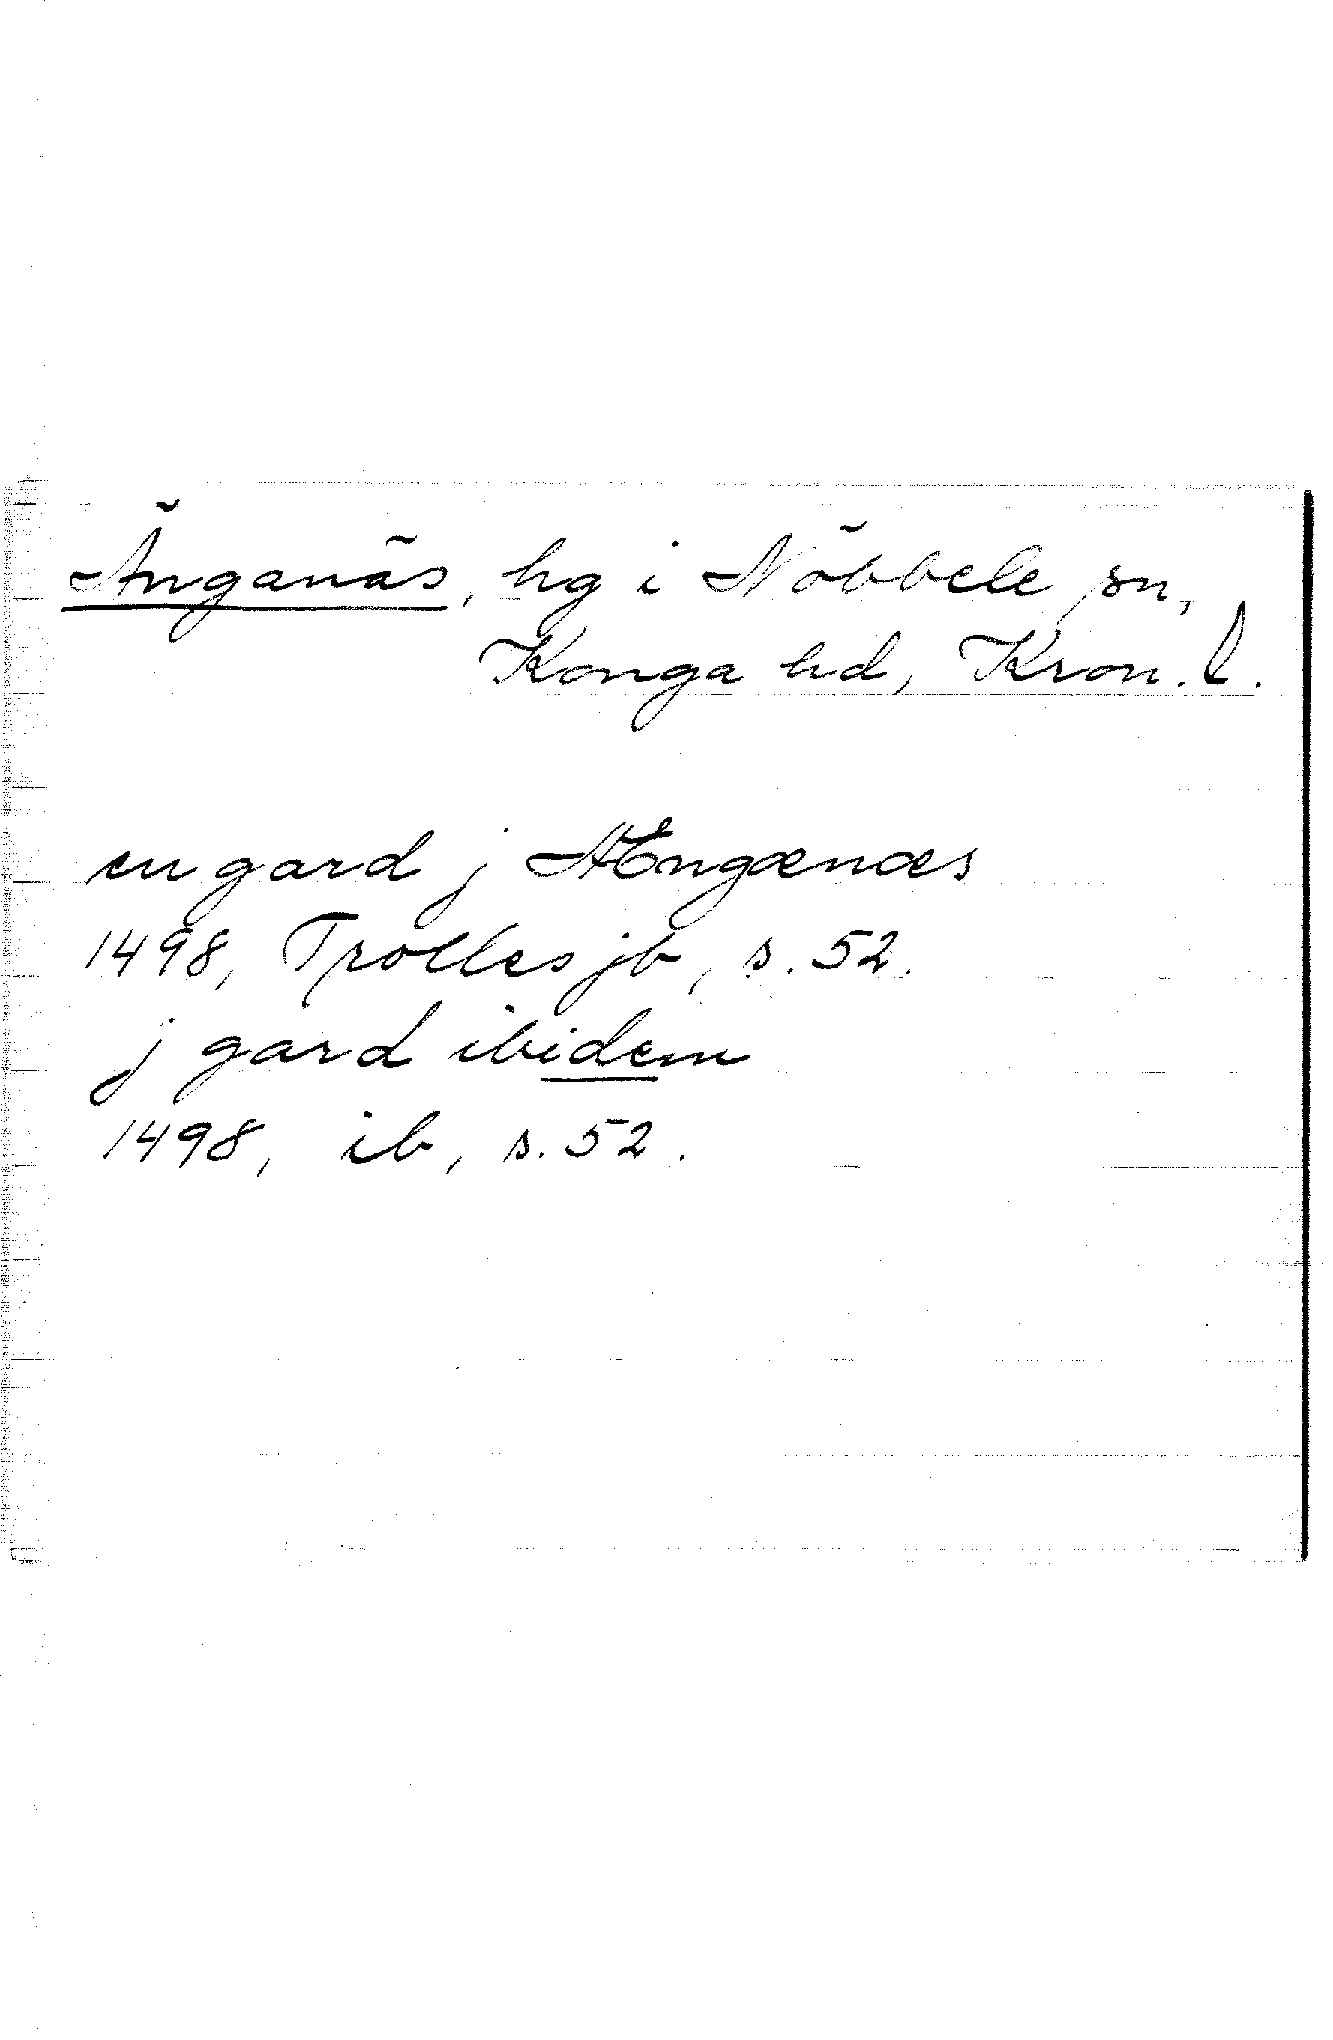 Änganäs, hg i Nöbbele sn,
Konga hd, Kron. l.
en gard j Ængænæs
1498, Trolles jb, s. 52.
j gard ibidem
1498, ib, s. 52.